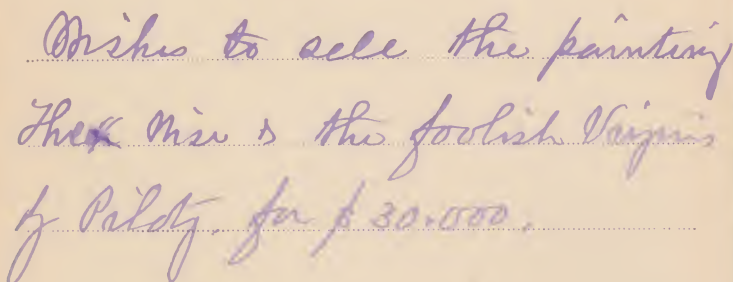 Wishes to sell the painting
The Wise & the foolish Virgins
by Piloty, for $30.000.